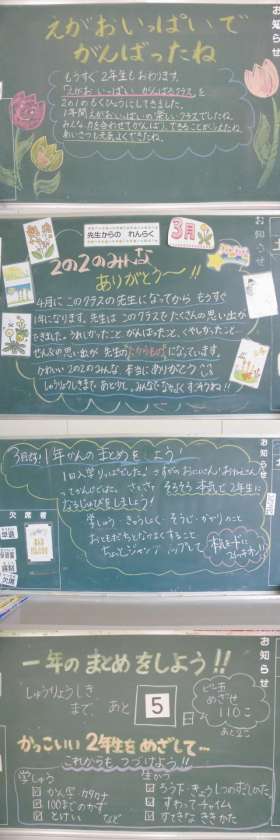 お知らせ
えがおいっぱいで
がんばったね
もうすぐ2年生もおわります。
「えがおいっぱい がんばるクラス」を
2の1のもくひょうにしてきました。
1年間えがおいっぱいの楽しいクラスでしたね。
みんな力を合わせてがんばり、できることがふえたね。
あいさつも元気よくできたね。
お知らせ
先生からの れんらく
3月
2の2のみんな
ありがとう〜!!
4月にこのクラスの先生になってから もうすぐ
1年になります。先生はこのクラスでたくさんの思い出が
できました。うれしかったこと、がんばったこと、くやしかったこと…
ぜんぶの思い出が 先生のたからものになっています。
かわいい2の2のみんな 本当にありがとう
しゅうりょうしきまで あと少し。みんなでなかよくすごそうね!!
お知らせ
3月だ!1年かんの まとめをしよう!
1日入学 りっぱでしたよ。さすがのおにいさん!おねえさん!
ってかんじでした。さてさて そろそろ 本気で2年生に
なるじゅんびをしましょう!
学しゅう・きゅうしょく・そうじ・かかりのこと
おともだちとなかよくすること
ちょっとジャンプアップして
本気モードに
スイッチオン!!
欠席者
お知らせ
一年の まとめをしよう!!
しゅうりょうしき
まで、あと
5
日
ビー玉
めざせ
110こ
あと2こ
かっこいい 2年生を めざして…
これからも つづけよう!!
学しゅう
かん字 カタカナ
100までのかず
とけい など
生かつ
ろう下・きょうしつのむだんせき
すわってチャイム
すてきな ききかた